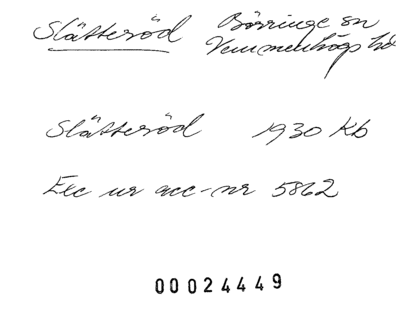 Slätteröd Börringe sn
Vemmenhögs hd
Slätteröd 1930 Kb
Exc ur acc-nr 5862
00024449